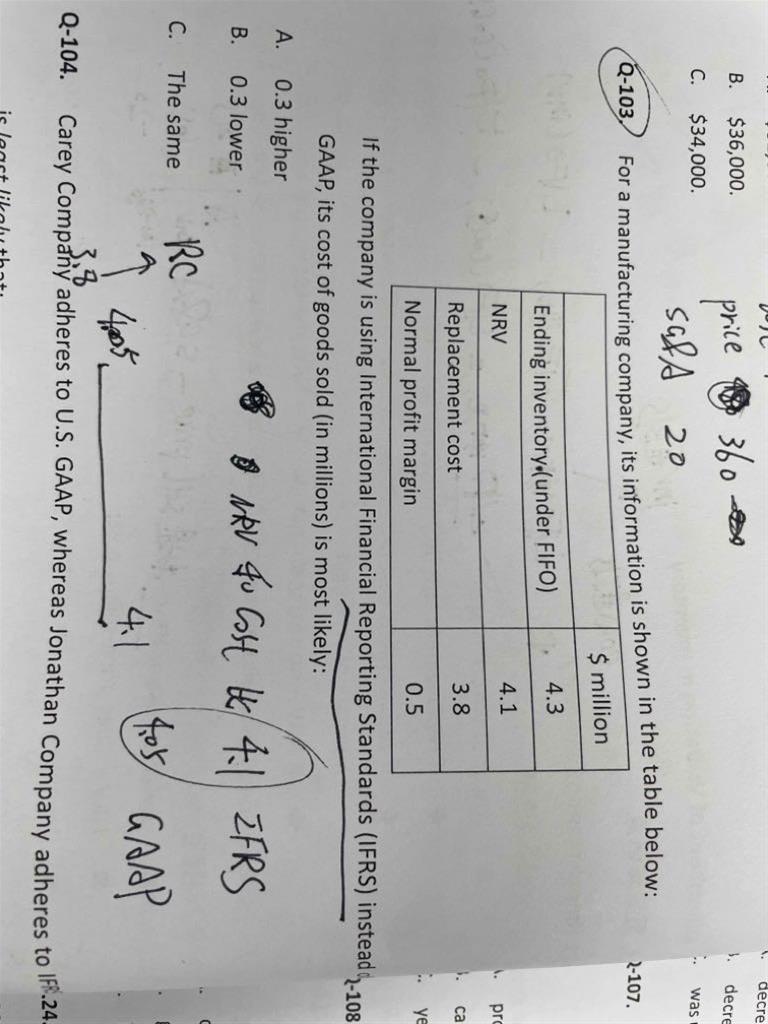 B. $36,000.
price 360
C. $34,000.
SG&A 20
Q-103. For a manufacturing company, its information is shown in the table below:
$ million
Ending inventory (under FIFO) 4.3
NRV 4.1
Replacement cost 3.8
Normal profit margin 0.5
If the company is using International Financial Reporting Standards (IFRS) instead
GAAP, its cost of goods sold (in millions) is most likely:
A. 0.3 higher
B. 0.3 lower
C. The same
NRV Cost 4.1 IFRS
RC
4.1 4.05 GAAP
4.05
3.8
Q-104. Carey Company adheres to U.S. GAAP, whereas Jonathan Company adheres to
is least likely that:
decre
decre
was
Q-107.
pro
ca
ye
Q-108
24.